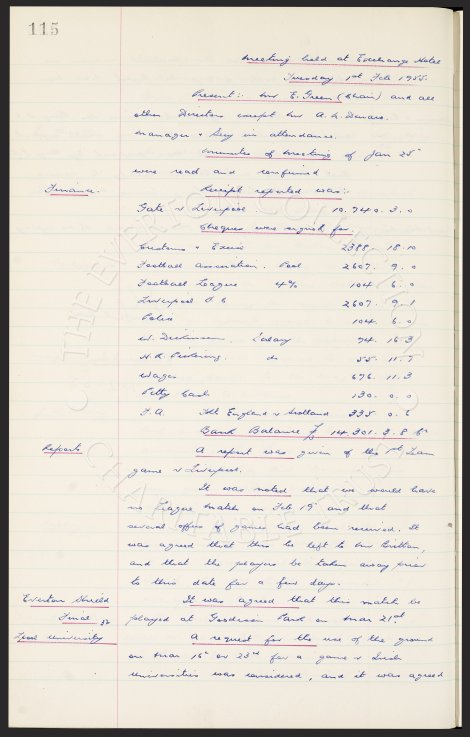 115
Meeting held at Exchange Hotel
Tuesday 1st Feb 1955.
Present:- Mr E. Green (Chair) and all
other Directors except Mr A. L. Denaro.
Manager & Secy in attendance.
Minutes of Meeting of Jan 25th
were read and confirmed
Finance. Receipt reported was:-
Gate v Liverpool. 10.740. 3. 0
Cheques were signed for
Customs & Excise 2388. 18. 10
Football Association. Pool 2607. 9. 0
Football League 4% 104. 6. 0
Liverpool F C 2607. 9. 1
Police 104. 6. 0
W. Dickinson. Salary 74. 16. 3
H. R. Pickering. do 55. 11. 7
Wages 676. 11. 3
Petty Cash 130. 0. 0
F.A. Tkt England v Scotland 335 0. 6
Bank Balance £ 14.301. 3. 8
Reports A report was given of the 1st Team
game v Liverpool.
It was noted that we would have
no league match on Feb 19th and that
several offers of games had been received. It
was agreed that this be left to Mr Britton,
and that the players be taken away prior
to this date for a few days.
Everton Shield It was agreed that this match be
Final played at Goodison Park on Mar 21st.
Lpool University A request for the use of the ground
on Mar 16th or 23rd for a game v Irish
Universities was considered, and it was agreed
THE EVERTON COLLECTION
CHARITABLE TRUST